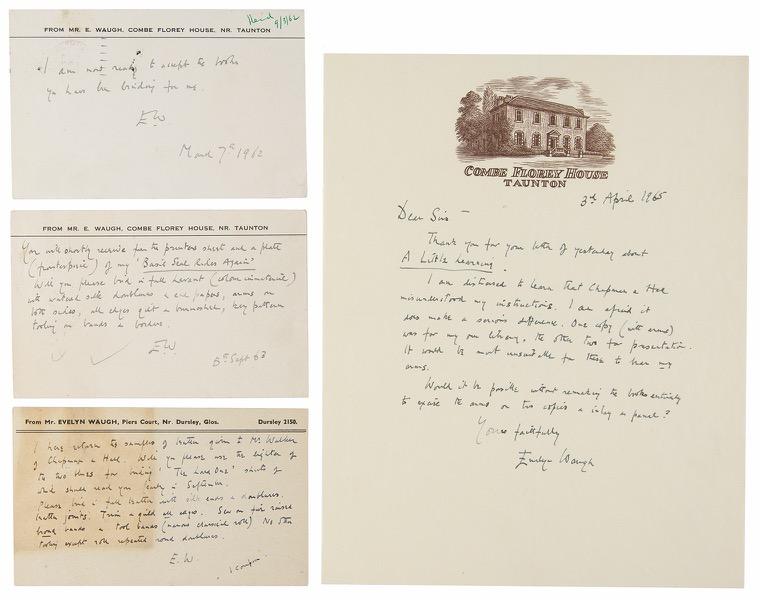 Heid
9/3/62
FROM MR. E. WAUGH, COMBE FLOREY HOUSE, NR. TAUNTON
I am now ready to accept the books
you have been binding for me.
E.W.
March 7th 1962
FROM MR. E. WAUGH, COMBE FLOREY HOUSE, NR. TAUNTON
You will shortly receive from the printers sheets and a plate
(frontispiece) of my 'Basil Seal Rides Again'
Will you please bind in full levant (colour immaterial)
with watered silk doublures & end papers, arms on
both sides, all edges gilt & burnished, key pattern
tooling on bands & borders.
E.W.
5th Sept 63
From Mr. EVELYN WAUGH, Piers Court, Nr. Dursley, Glos. Dursley 2150.
I here return the samples of leather given to Mr Walker
of Chapman & Hall. Will you please use the lighter of
the two blues for binding 'The Loved One' sheets of
which should reach you early in September.
Please bind in full leather with silk ends & doublures.
leather joints. Trim & gild all edges. Sew on five raised
broad bands & tool bands (narrow classical roll) No other
tooling except roll repeated round doublures.
E.W.
COMBE FLOREY HOUSE
TAUNTON
3rd April 1965
Dear Sirs –
Thank you for your letter of yesterday about
A Little Learning.
I am distressed to learn that Chapman & Hall
misunderstood my instructions. I am afraid it
does make a serious difference. One copy (with arms)
was for my own library, the other two for presentation.
It would be most unsuitable for these to bear my
arms.
Would it be possible without remaking the books entirely
to excise the arms on two copies & inlay a panel?
Yours faithfully
Evelyn Waugh